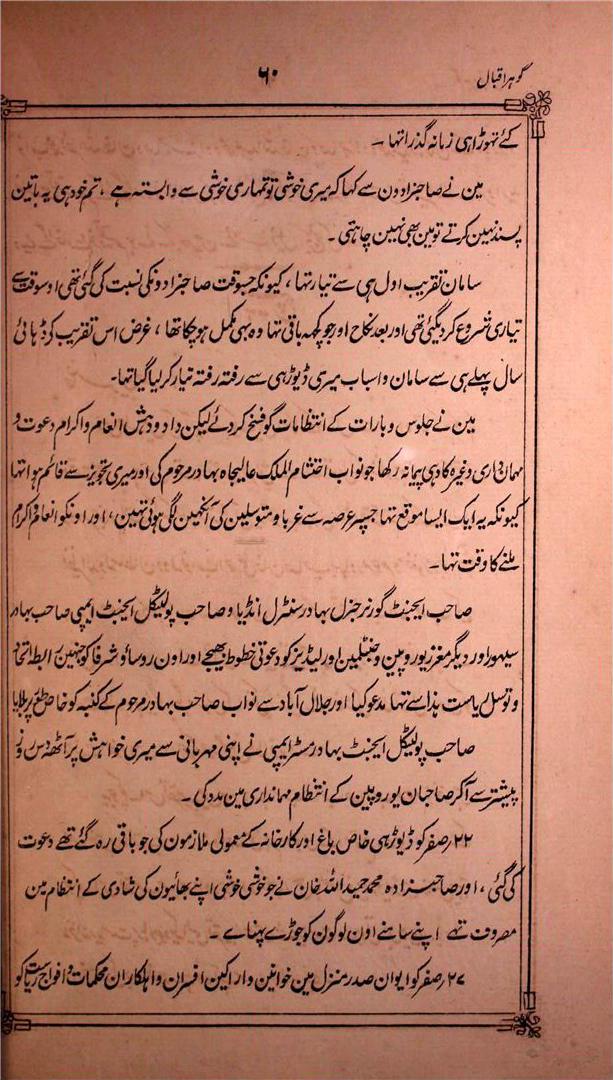 گوہر اقبال
۶۰
کئے تھوڑا ہی زمانہ گذرا تھا ۔
مین نے صاحبزادون سے کہا کہ میری خوشی تو تمہاری خوشی سے وابستہ ہے ، تم خود ہی یہ باتین
پسند نہین کرتے تو مین بھی نہین چاہتی ۔
سامان تقریب اول ہی سے تیار تھا ، کیونکہ جسوقت صاحبزادونکی نسبت کی گئی تھی اوسوقت سے
تیاری شروع کر دیگئی تھی اور بعد نکاح اور جو کچھہ باقی تھا وہ بھی مکمل ہو چکا تھا ، غرض اس تقریب کو ڈہائی
سال پہلے ہی سے سامان و اسباب میری ڈیوڑہی سے رفتہ رفتہ تیار کر لیا گیا تھا۔
مین نے جلوس و بارات کے انتظامات گو فسخ کر دئے لیکن داد و دہش انعام و اکرام دعوت و
مہانداری وغیرہ کا وہی پیمانہ رکھا جو نواب احتشام الملک عالیجاہ بہادر مرحوم کی اور میری تجویز سے قائم ہوا تھا
کیونکہ یہ ایک ایسا موقع تھا جسپر عرصہ سے غربا و متوسلین کی آنکھین لگی ہوئی تھین ، اور اونکو انعام و اکرام
ملنے کا وقت تھا ۔
صاحب ایجنٹ گورنر جنرل بہادر سنٹرل انڈیا و صاحب پولیٹکل ایجنٹ ایمپی صاحب بہادر
سیہور اور دیگر معزز یوروپین و جنٹلمین اور لیڈیز کو دعوتی خطوط بھیجے اور اون روسا و شرفا کو جنہین رابطہ اتحاد
و توسل ریاست ہذا سے تھا مدعو کیا اور جلال آباد سے نواب صاحب بہادر مرحوم کے کنبہ کو خاص طور پر بلایا
صاحب پولیٹکل ایجنٹ بہادر مسٹر ایمپی نے اپنی مہربانی سے میری خواہش پر آٹھہ دس روز
پیشتر سے آکر صاحبان یوروپین کے انتظام مہمانداری مین مدد کی ۔
۲۲ صفر کو ڈیوڑہی خاص باغ اور کارخانہ کے معمولی ملازمون کی جو باقی رہ گئے تھے دعوت
کی گئی ، اور صاحبزادہ محمد حمید اللہ خان نے جو خوشی خوشی اپنے بھائیون کی شادی کے انتظام مین
مصروف تھے اپنے سامنے اون لوگون کو جوڑے پہناے ۔
۲۷ صفر کو ایوان صدر منزل مین خوانین و اراکین افسران و اہلکاران محکمات و افواج ریاست کو